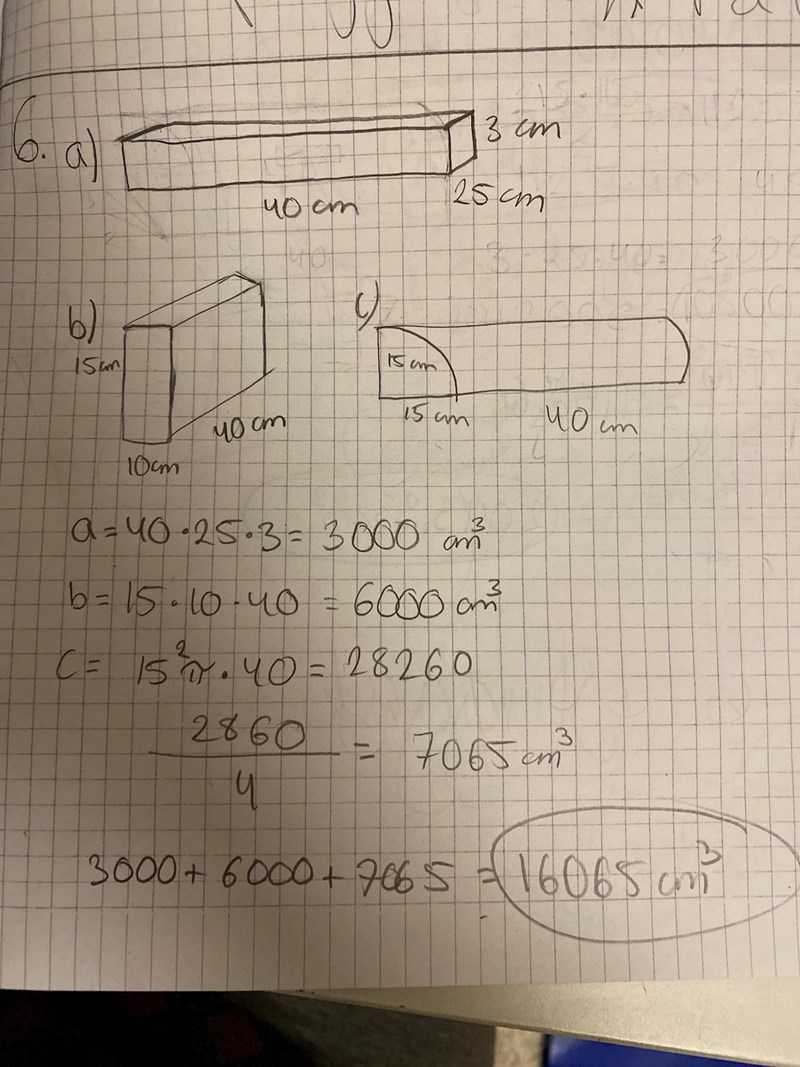 6. a)
3 cm
40 cm
25 cm
b)
15cm
40 cm
10cm
c)
15 cm
15 cm
40 cm
a=40·25·3= 3000 cm³
b= 15·10·40 = 6000 cm³
C= 15²π·40 = 28260
2860/4 = 7065 cm³
3000+ 6000+ 7065 = 16065 cm³